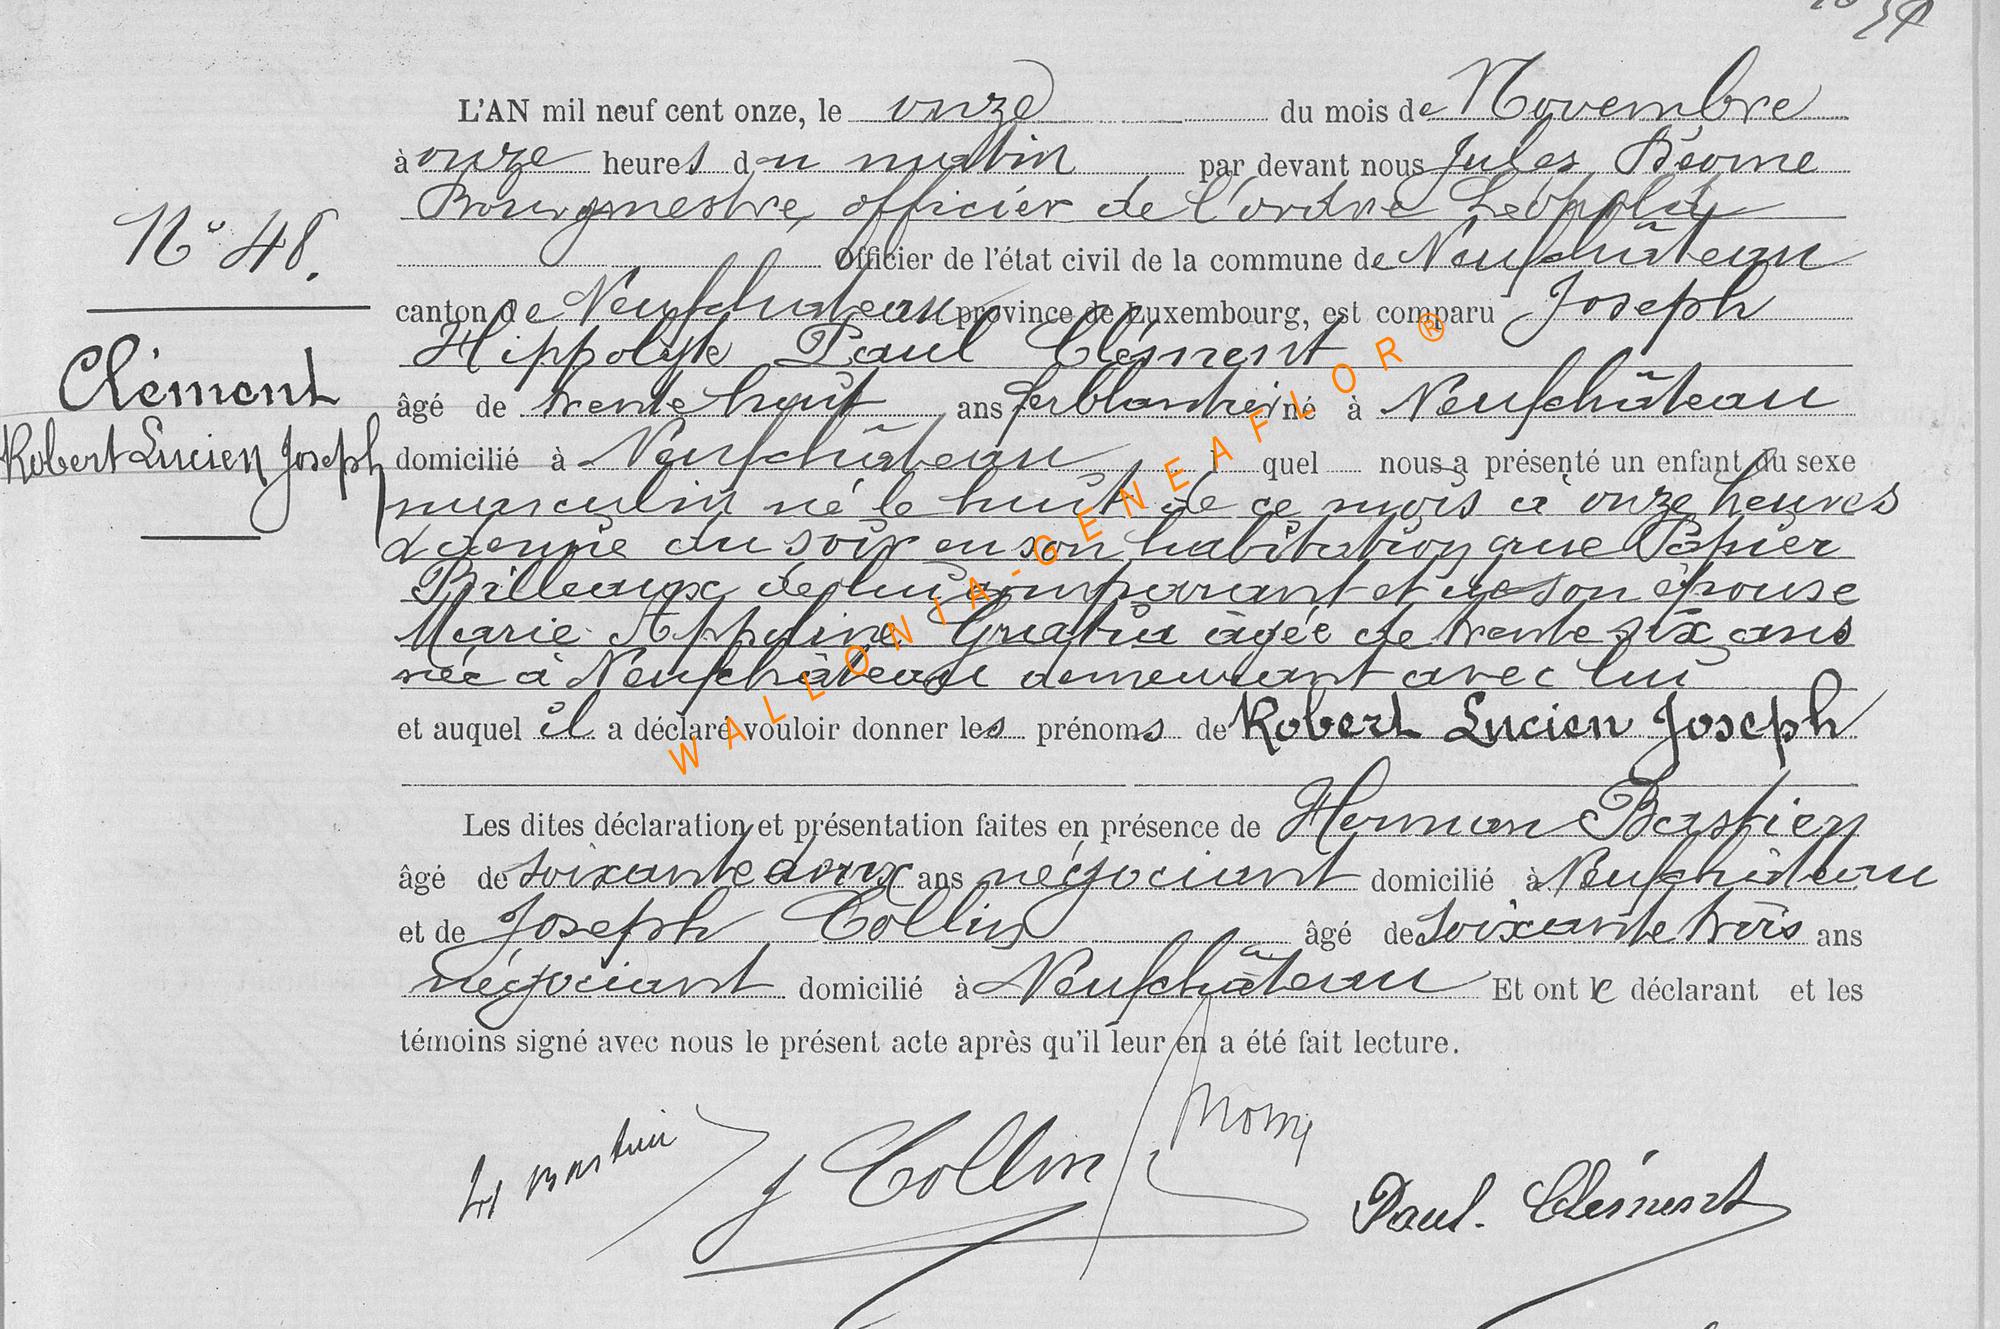 L'AN mil neuf cent onze, le onze du mois de Novembre
à onze heures du matin par devant nous Jules
Bourgmestre, officier de l'ordre Léopold
Officier de l'état civil de la commune de Neufchâteau
N° 48.
canton de Neufchâteau province de Luxembourg, est comparu Joseph
Hippolyte Paul Clément
Clément
Robert Lucien Joseph
âgé de trente huit ans ferblantier né à Neufchâteau
domicilié à Neufchâteau lequel nous a présenté un enfant du sexe
masculin né le huit de ce mois à onze heures
du soir en son habitation rue
de lui comparant et de son épouse
Marie Appoline âgée de trente six ans
née à Neufchâteau demeurant avec lui
et auquel il a déclaré vouloir donner les prénoms de Robert Lucien Joseph
WALLONIA-GENEAFLOR®
Les dites déclaration et présentation faites en présence de Herman Bastien
âgé de soixante deux ans négociant domicilié à Neufchâteau
et de Joseph Collin âgé de soixante trois ans
négociant domicilié à Neufchâteau Et ont le déclarant et les
témoins signé avec nous le présent acte après qu'il leur en a été fait lecture.
H Bastien J Collin Paul. Clément